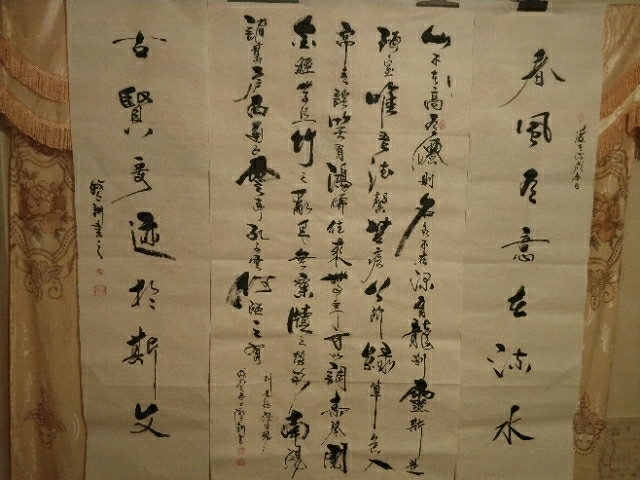 春風有意在流水
山不在高有僊則名水不在深有龍則靈斯是
陋室唯吾德馨苔痕上階綠草色入
帘青談笑有鴻儒往來無白丁可以調素琴閱
金經無絲竹之亂耳無案牘之勞形南陽
諸葛廬西蜀子雲亭孔子云何陋之有
劉禹錫陋室銘
古賢迹於斯文